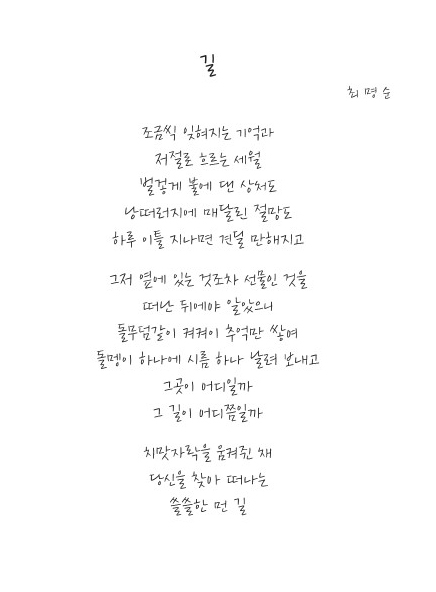 길
최명순
조금씩 잊혀지는 기억과
저절로 흐르는 세월
벌겋게 불에 댄 상처도
낭떠러지에 매달린 절망도
하루 이틀 지나면 견딜 만해지고
그저 옆에 있는 것조차 선물인 것을
떠난 뒤에야 알았으니
돌무덤같이 켜켜이 추억만 쌓여
돌멩이 하나에 시름 하나 날려 보내고
그곳이 어디일까
그 길이 어디쯤일까
치맛자락을 움켜쥔 채
당신을 찾아 떠나는
쓸쓸한 먼 길